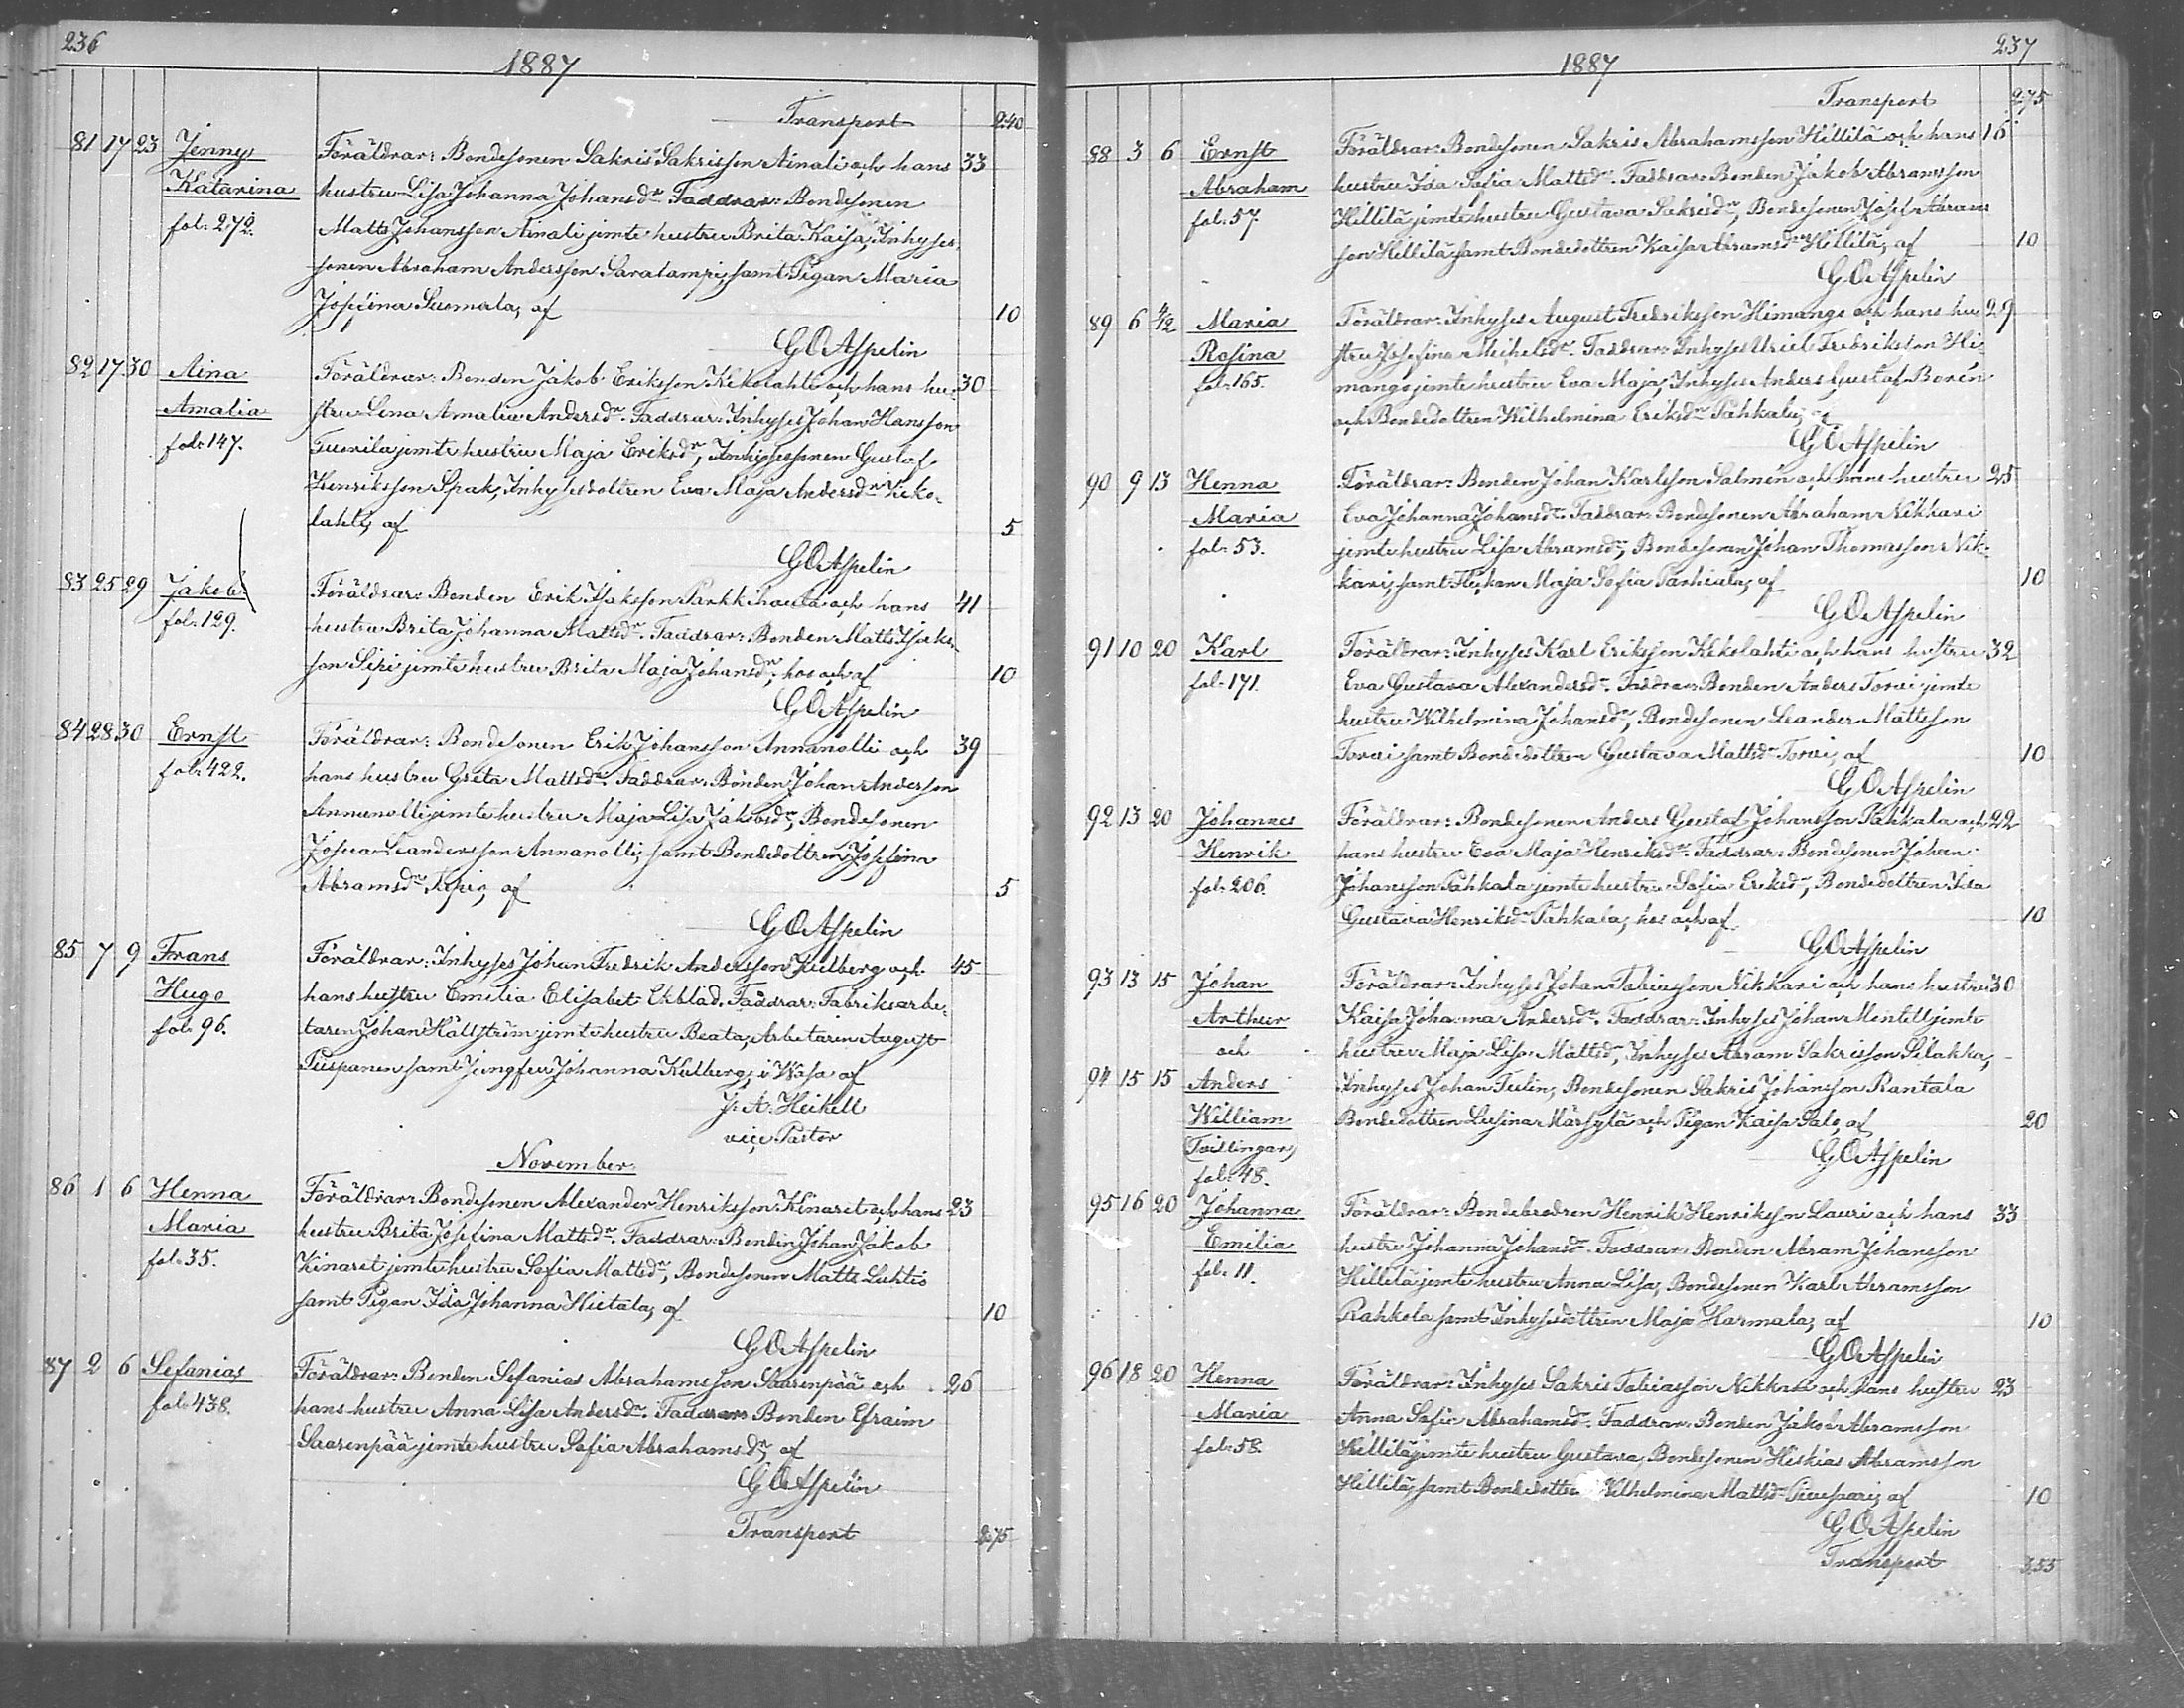 236
1887
Transport 2,40
81 17 23 Jenny Föräldrar: Bondesonen Sakris Sakrisson Ainali och hans 33
Katarina hustru Lisa Johanna Johansdr. Faddrar: Bondesonen
fol. 272. Matts Johansson Ainali jemte hustru Brita Kaisa, Inhyses-
sonen Abraham Andersson Saralampi, samt Pigan Maria
Josefina Suomala, af 10
G O Aspelin
82 17 30 Aina Föräldrar: Bonden Jakob Eriksson Kekolahti och hans hu- 30
Amalia stru Lena Amalia Andersdr. Faddrar: Inhyses Johan Hansson
fol. 147. Tuorila jemte hustru Maja Eriksdr, Inhysessonen Gustaf
Henriksson Spak, Inhysesdottren Eva Maja Andersdr Keko-
lahti, af 5
G O Aspelin
83 25 29 Jakob Föräldrar: Bonden Erik Isaksson Parkkihauta och hans 41
fol. 129. hustru Brita Johanna Mattsdr. Faddrar: Bonden Matts Isaks-
son Sipi jemte hustru Brita Maja Johansdr, hos och af 10
G O Aspelin
84 28 30 Ernst Föräldrar: Bondesonen Erik Johansson Annanolli och 39
fol. 422. hans hustru Greta Mattsdr. Faddrar: Bonden Johan Andersson
Annanolli jemte hustru Maja Lisa Jakobsdr, Bondesonen
Josua Leandersson Annanolli, samt Bondedottren Josefina
Abramsdr Typpö, af 5
G O Aspelin
85 7 9 Frans Föräldrar: Inhyses Johan Fredrik Andersson Kulberg och 45
Hugo hans hustru Emilia Elisabet Ekblad. Faddrar: Fabriksarbe-
fol. 96. taren Johan Hällström jemte hustru Beata, Arbetaren August
Puspanen samt Jungfru Johanna Kulberg, i Wasa af
J. A. Heikell
vice Pastor
November
86 1 6 Henna Föräldrar: Bondesonen Alexander Henriksson Kinaret och hans 23
Maria hustru Brita Josefina Mattsdr. Faddrar: Bonden Johan Jakob
fol. 35. Kinaret jemte hustru Sofia Mattsdr, Bondesonen Matts Luhtio
samt Pigan Ida Johanna Hietala, af 10
G O Aspelin
87 2 6 Sefanias Föräldrar: Bonden Sefanias Abrahamsson Saarenpää och 26
fol. 438. hans hustru Anna Lisa Andersdr. Faddrar: Bonden Efraim
Saarenpää jemte hustru Sofia Abrahamsdr, af
G O Aspelin
Transport 2,75
237
1887
Transport 2,75
88 3 6 Ernst Föräldrar: Bondesonen Sakris Abrahamsson Hillilä och hans 16
Abraham hustru Ida Sofia Mattsdr. Faddrar: Bonden Jakob Abramsson
fol. 57. Hillilä jemte hustru Gustava Sakrisdr, Bondesonen Josef Abrams
son Hillilä samt Bondedottren Kaisa Abramsdr Hillilä, af 10
G O Aspelin
89 6 4/12 Maria Föräldrar: Inhyses August Fredriksson Himango och hans hu 29
Rosina stru Josefina Mickelsdr. Faddrar: Inhyses Uriel Fredriksson Hi-
fol. 165. mango jemte hustru Eva Maja, Inhyses Anders Gustaf Borén
och Bondedottren Wilhelmina Eriksdr Pahkala, af
G O Aspelin
90 9 13 Henna Föräldrar: Bonden Johan Karlsson Salmén och hans hustru 25
Maria Eva Johanna Johansdr. Faddrar: Bondesonen Abraham Nikkari
fol. 53. jemte hustru Lisa Abramsdr, Bondesonen Johan Thomasson Nik-
kari, samt Flickan Maja Sofia Parhiala, af 10
G O Aspelin
91 10 20 Karl Föräldrar: Inhyses Karl Eriksson Kekolahti och hans hustru 32
fol. 171. Eva Gustava Alexandersdr. Faddrar: Bonden Anders Torvi jemte
hustru Wilhelmina Johansdr, Bondesonen Leander Mattsson
Torvi samt Bondedottren Gustava Mattsdr Torvi, af 10
G O Aspelin
92 13 20 Johannes Föräldrar: Bondesonen Anders Gustaf Johansson Pahkala och 22
Henrik hans hustru Eva Maja Henriksdr. Faddrar: Bondesonen Johan
fol. 206. Johansson Pahkala jemte hustru Sofia Eriksdr, Bondedottren Ida
Gustava Henriksdr Pahkala, hos och af 10
G O Aspelin
93 13 15 Johan Föräldrar: Inhyses Johan Tobiasson Nikkari och hans hustru 30
Arthur Kaisa Johanna Andersdr. Faddrar: Inhyses Johan Mentell jemte
och hustru Maja Lisa Mattsdr, Inhyses Abram Sakrisson Silakka,
94 15 15 Anders Inhyses Johan Tulin, Bondesonen Sakris Johansson Rantala
William Bondedottren Lusina Märsylä och Pigan Kaisa Salo, af 20
(Tvillingar) G O Aspelin
fol. 48.
95 16 20 Johanna Föräldrar: Bondebrodren Henrik Henriksson Lauri och hans 33
Emilia hustru Johanna Johansdr. Faddrar: Bonden Abram Johansson
fol. 11. Hillilä jemte hustru Anna Lisa, Bondesonen Karl Abramsson
Rahkola samt Inhysesdottren Maja Harmala, af 10
G O Aspelin
96 18 20 Henna Föräldrar: Inhyses Sakris Tobiasson Nikkari och hans hustru 23
Maria Anna Sofia Abrahamsdr. Faddrar: Bonden Jakob Abramsson
fol. 58. Hillilä jemte hustru Gustava, Bondesonen Hiskias Abramsson
Hillilä, samt Bondedottren Wilhelmina Mattsdr af 10
G O Aspelin
Transport 3,55